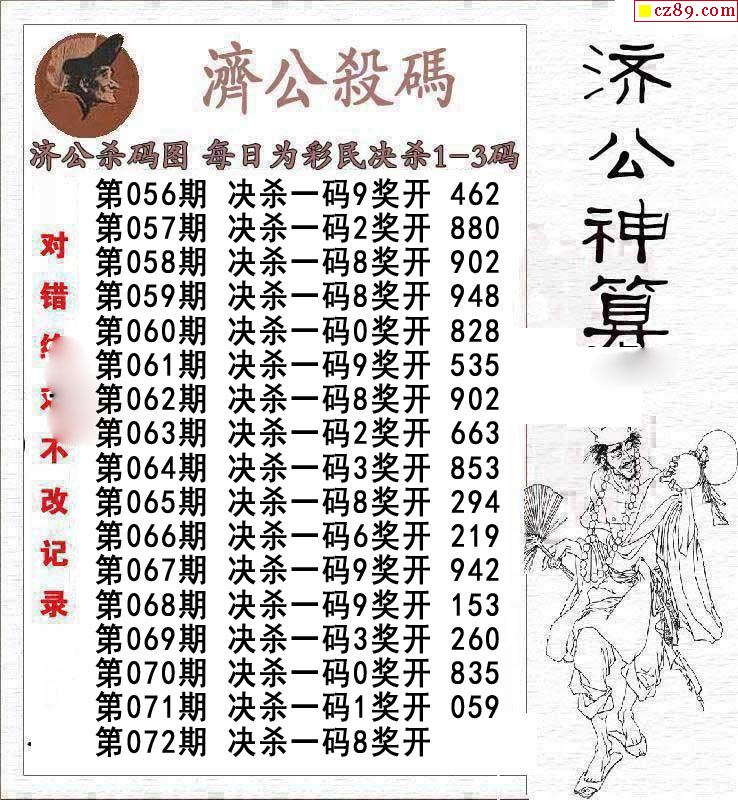 cz89.com
濟公殺碼
济公杀码图 每日为彩民决杀1-3码
第056期 决杀一码9奖开 462
第057期 决杀一码2奖开 880
第058期 决杀一码8奖开 902
第059期 决杀一码8奖开 948
第060期 决杀一码0奖开 828
第061期 决杀一码9奖开 535
第062期 决杀一码8奖开 902
第063期 决杀一码2奖开 663
第064期 决杀一码3奖开 853
第065期 决杀一码8奖开 294
第066期 决杀一码6奖开 219
第067期 决杀一码9奖开 942
第068期 决杀一码9奖开 153
第069期 决杀一码3奖开 260
第070期 决杀一码0奖开 835
第071期 决杀一码1奖开 059
第072期 决杀一码8奖开
对错不改记录
济公神算